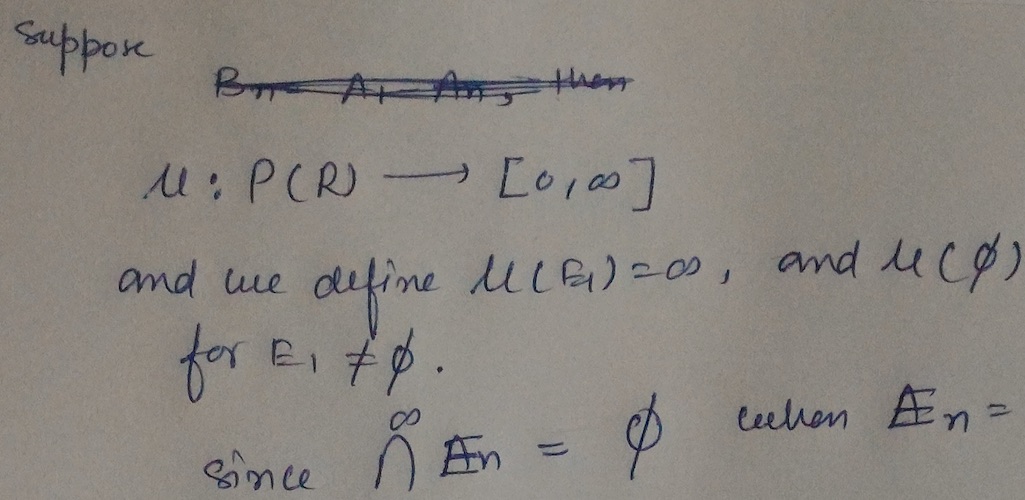 Suppose
Bn = A1 - An, then
μ : P(R) → [0, ∞]
and we define μ(E1) = ∞, and μ(ϕ)
for E1 ≠ ϕ.
since ∞ ∩ En = ϕ when En =